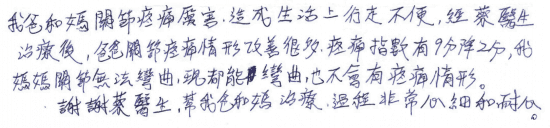 我爸和媽關節疼痛厲害,造成生活上行走不便,經蔡醫生
治療後,爸爸關節疼痛情形改善很多.疼痛指數有9分降2分,我
媽媽關節無法彎曲,現都能彎曲,也不會有疼痛情形。
謝謝蔡醫生,幫我爸和媽治療.過程非常仔細和耐心
。